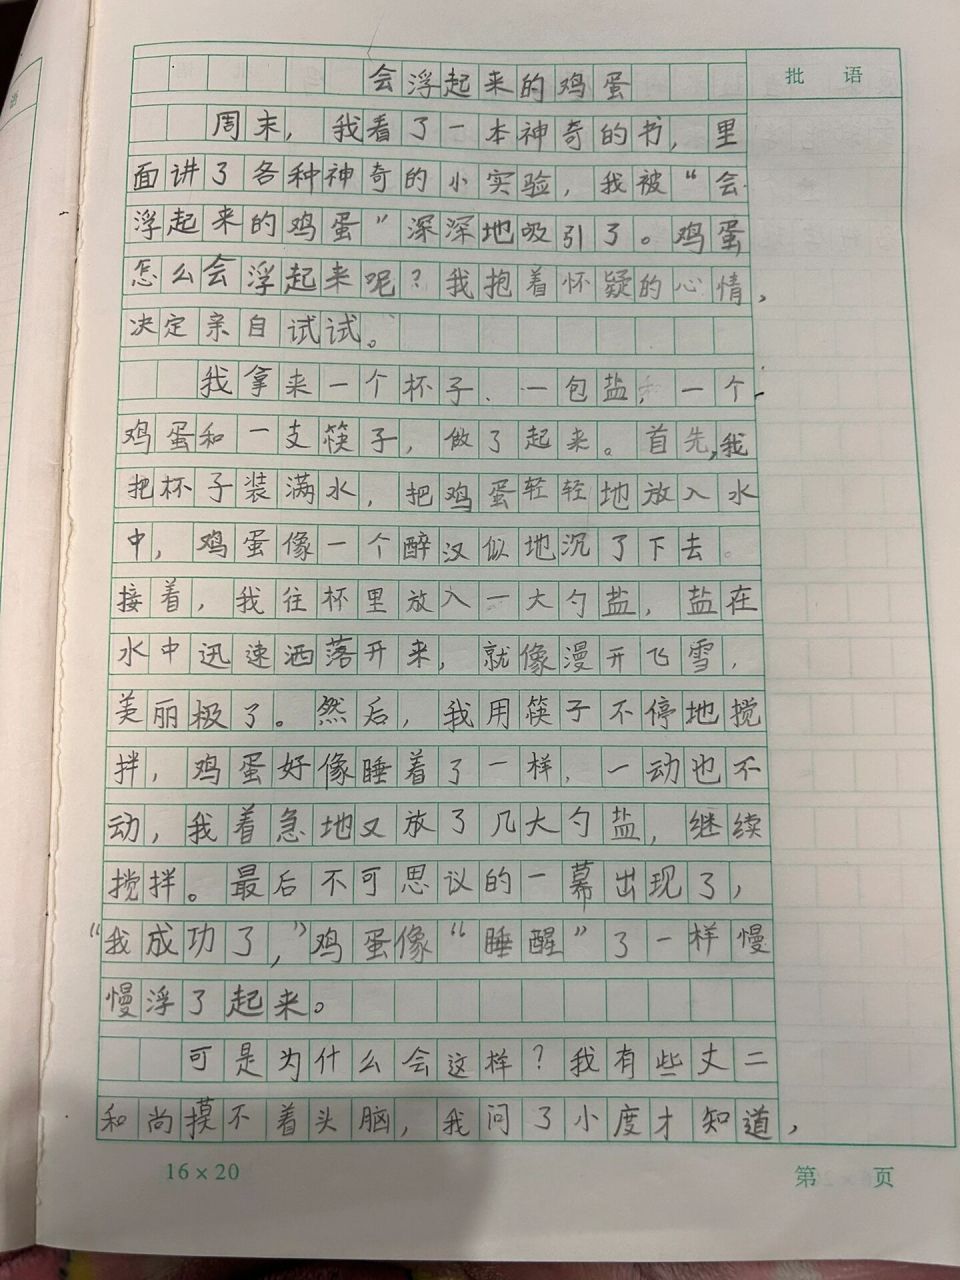 会浮起来的鸡蛋
批 语
周末，我看了一本神奇的书，里
面讲了各种神奇的小实验，我被“会
浮起来的鸡蛋”深深地吸引了。鸡蛋
怎么会浮起来呢？我抱着怀疑的心情，
决定亲自试试。
我拿来一个杯子、一包盐，一个
鸡蛋和一支筷子，做了起来。首先，我
把杯子装满水，把鸡蛋轻轻地放入水
中，鸡蛋像一个醉汉似地沉了下去。
接着，我往杯里放入一大勺盐，盐在
水中迅速洒落开来，就像漫开飞雪，
美丽极了。然后，我用筷子不停地搅
拌，鸡蛋好像睡着了一样，一动也不
动，我着急地又放了几大勺盐，继续
搅拌。最后不可思议的一幕出现了，
“我成功了，”鸡蛋像“睡醒”了一样慢
慢浮了起来。
可是为什么会这样？我有些丈二
和尚摸不着头脑，我问了小度才知道，
16×20
第 页